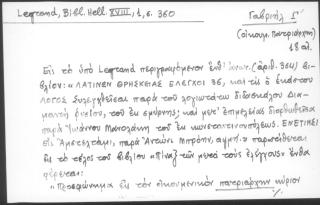 Legrand, Bibl. Hell. XVIII, 1, σ. 360
Γαβριήλ Γ'
(οἰκουμ. Πατριάρχης)
18 αἰ.
Εἰς τὸ ὑπὸ Legrand περιγραφόμενον ἐνθ' ἀνωτ. (ἀριθ. 364) βι-
βλίον: «ΛΑΤΙΝΩΝ ΘΡΗΣΚΕΙΑΣ ΕΛΕΓΧΟΙ 36, καὶ τις ὁ ἑκάστου
ΛΟΓΟΣ συλεχθεῖσαι παρὰ τοῦ λογιωτάτου διδασκάλου Δια-
μαντῆ Ῥυσίου, τοῦ ἐκ σμύρνης; καὶ μετ' ἐπιμελείας διορθωθεῖσαι
παρὰ Ἰωάννου Μανολάκη τοῦ ἐκ κωνσταντινουπόλεως. ΕΝΕΤΙΗΣΙ
εἰς Ἀμστελτάμι, παρὰ Ἀντώνη Μπρόνη, αψμη'.» παρατίθεται
εἰς τὸ τέλος τοῦ βιβλίου «Πίναξ τῶν μετὰ τοὺς ἐλέγχους» ἔνθα
φέρεται:
«Προσφώνημα εἰς τὸν οἰκουμενικὸν πατριάρχην κύριον